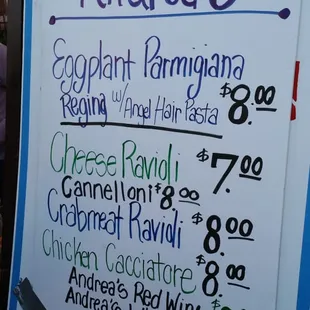 Eggplant Parmigiana
Regina w/Angel Hair Pasta $8.00
Cheese Ravioli $7.00
Cannelloni $8.00
Crabmeat Ravioli $8.00
Chicken Cacciatore $8.00
Andrea's Red Wine
Andrea's